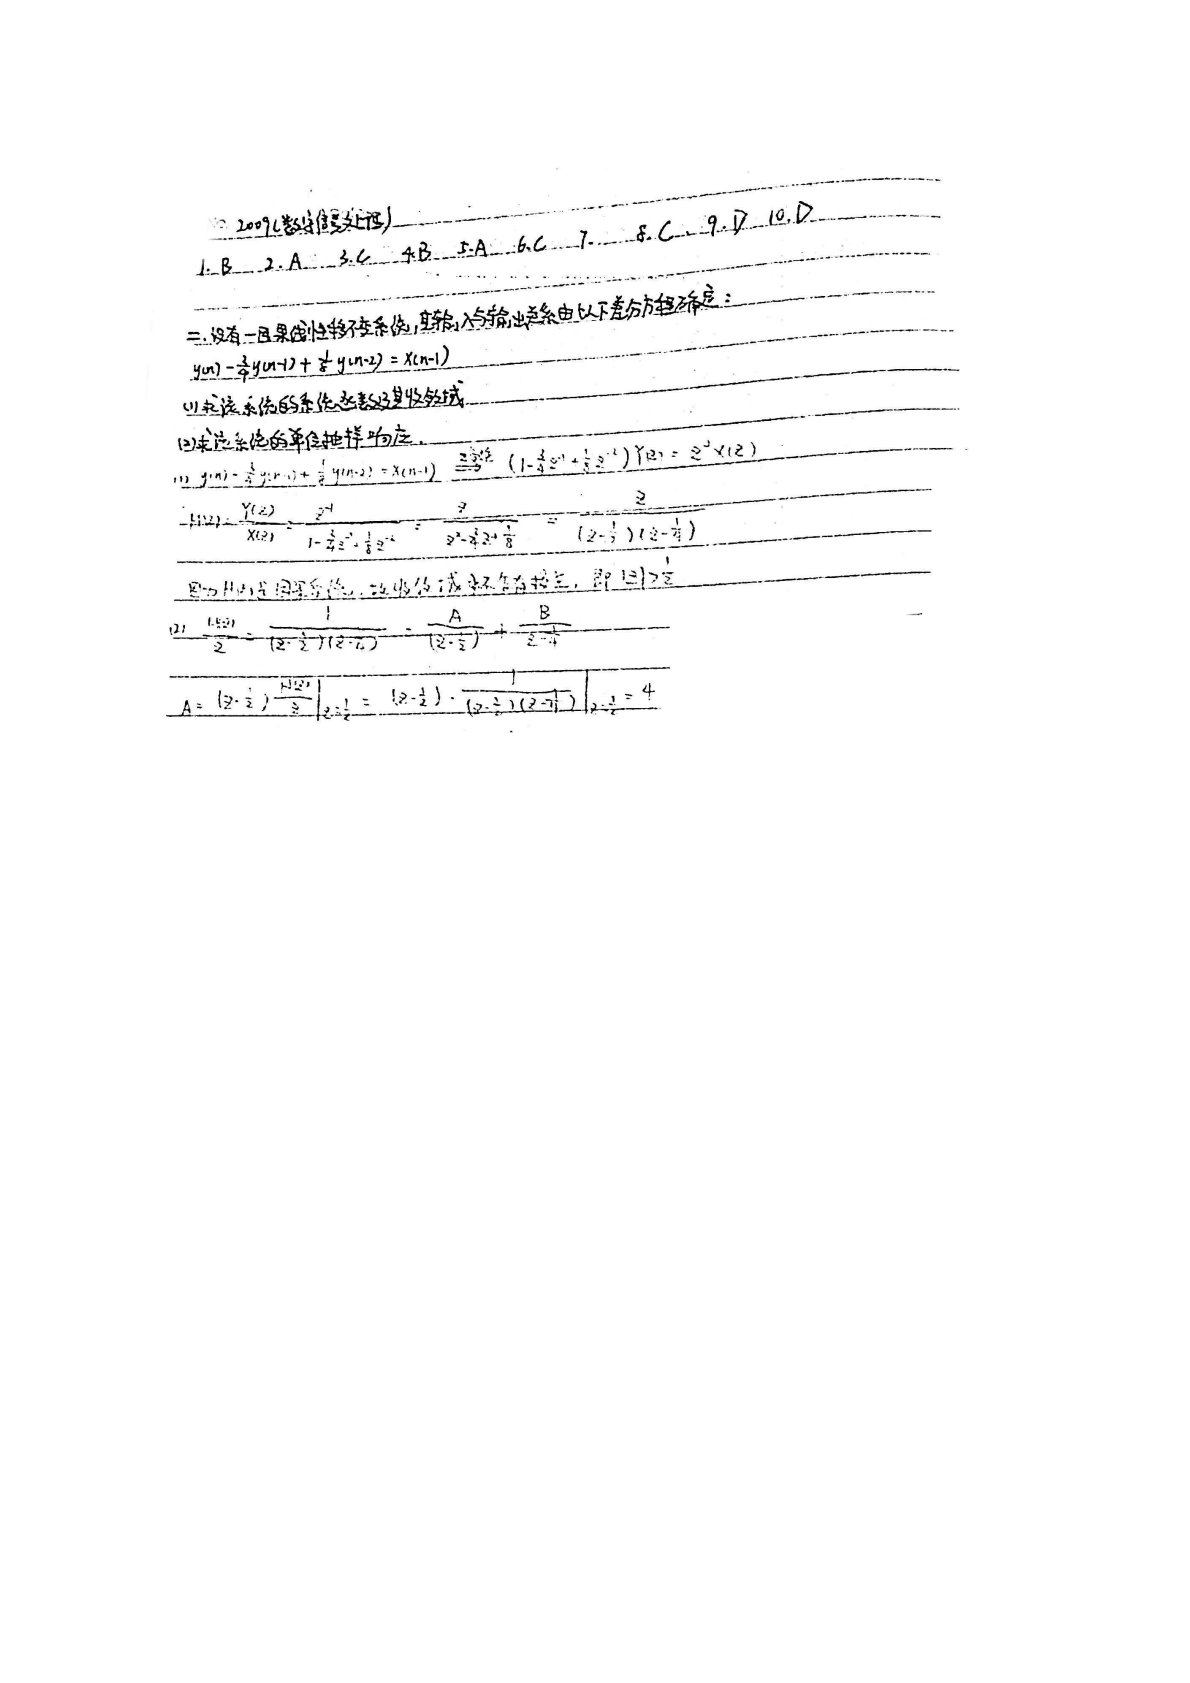 2009(数字信号处理)
1. B 2. A 3. C 4. B 5. A 6. C 7. 8. C 9. D 10. D
二. 设有一因果线性移不变系统,其输入与输出关系由以下差分方程确定:
y(n) - 3/4 y(n-1) + 1/8 y(n-2) = x(n-1)
(1) 求该系统的系统函数及其收敛域
(2) 求该系统的单位抽样响应.
(1) y(n) - 3/4 y(n-1) + 1/8 y(n-2) = x(n-1) ⟹ (1 - 3/4 z⁻¹ + 1/8 z⁻²) Y(z) = z⁻¹ X(z)
H(z) = Y(z)/X(z) = z⁻¹/(1 - 3/4 z⁻¹ + 1/8 z⁻²) = z/(z² - 3/4 z + 1/8) = z/((z - 1/2)(z - 1/4))
因为H(z)是因果系统, 故收敛域不含有极点, 即 |z| > 1/2
(2) H(z)/z = 1/((z - 1/2)(z - 1/4)) = A/(z - 1/2) + B/(z - 1/4)
A = (z - 1/2) H(z)/z |z=1/2 = (z - 1/2) · 1/((z - 1/2)(z - 1/4)) |z=1/2 = 4